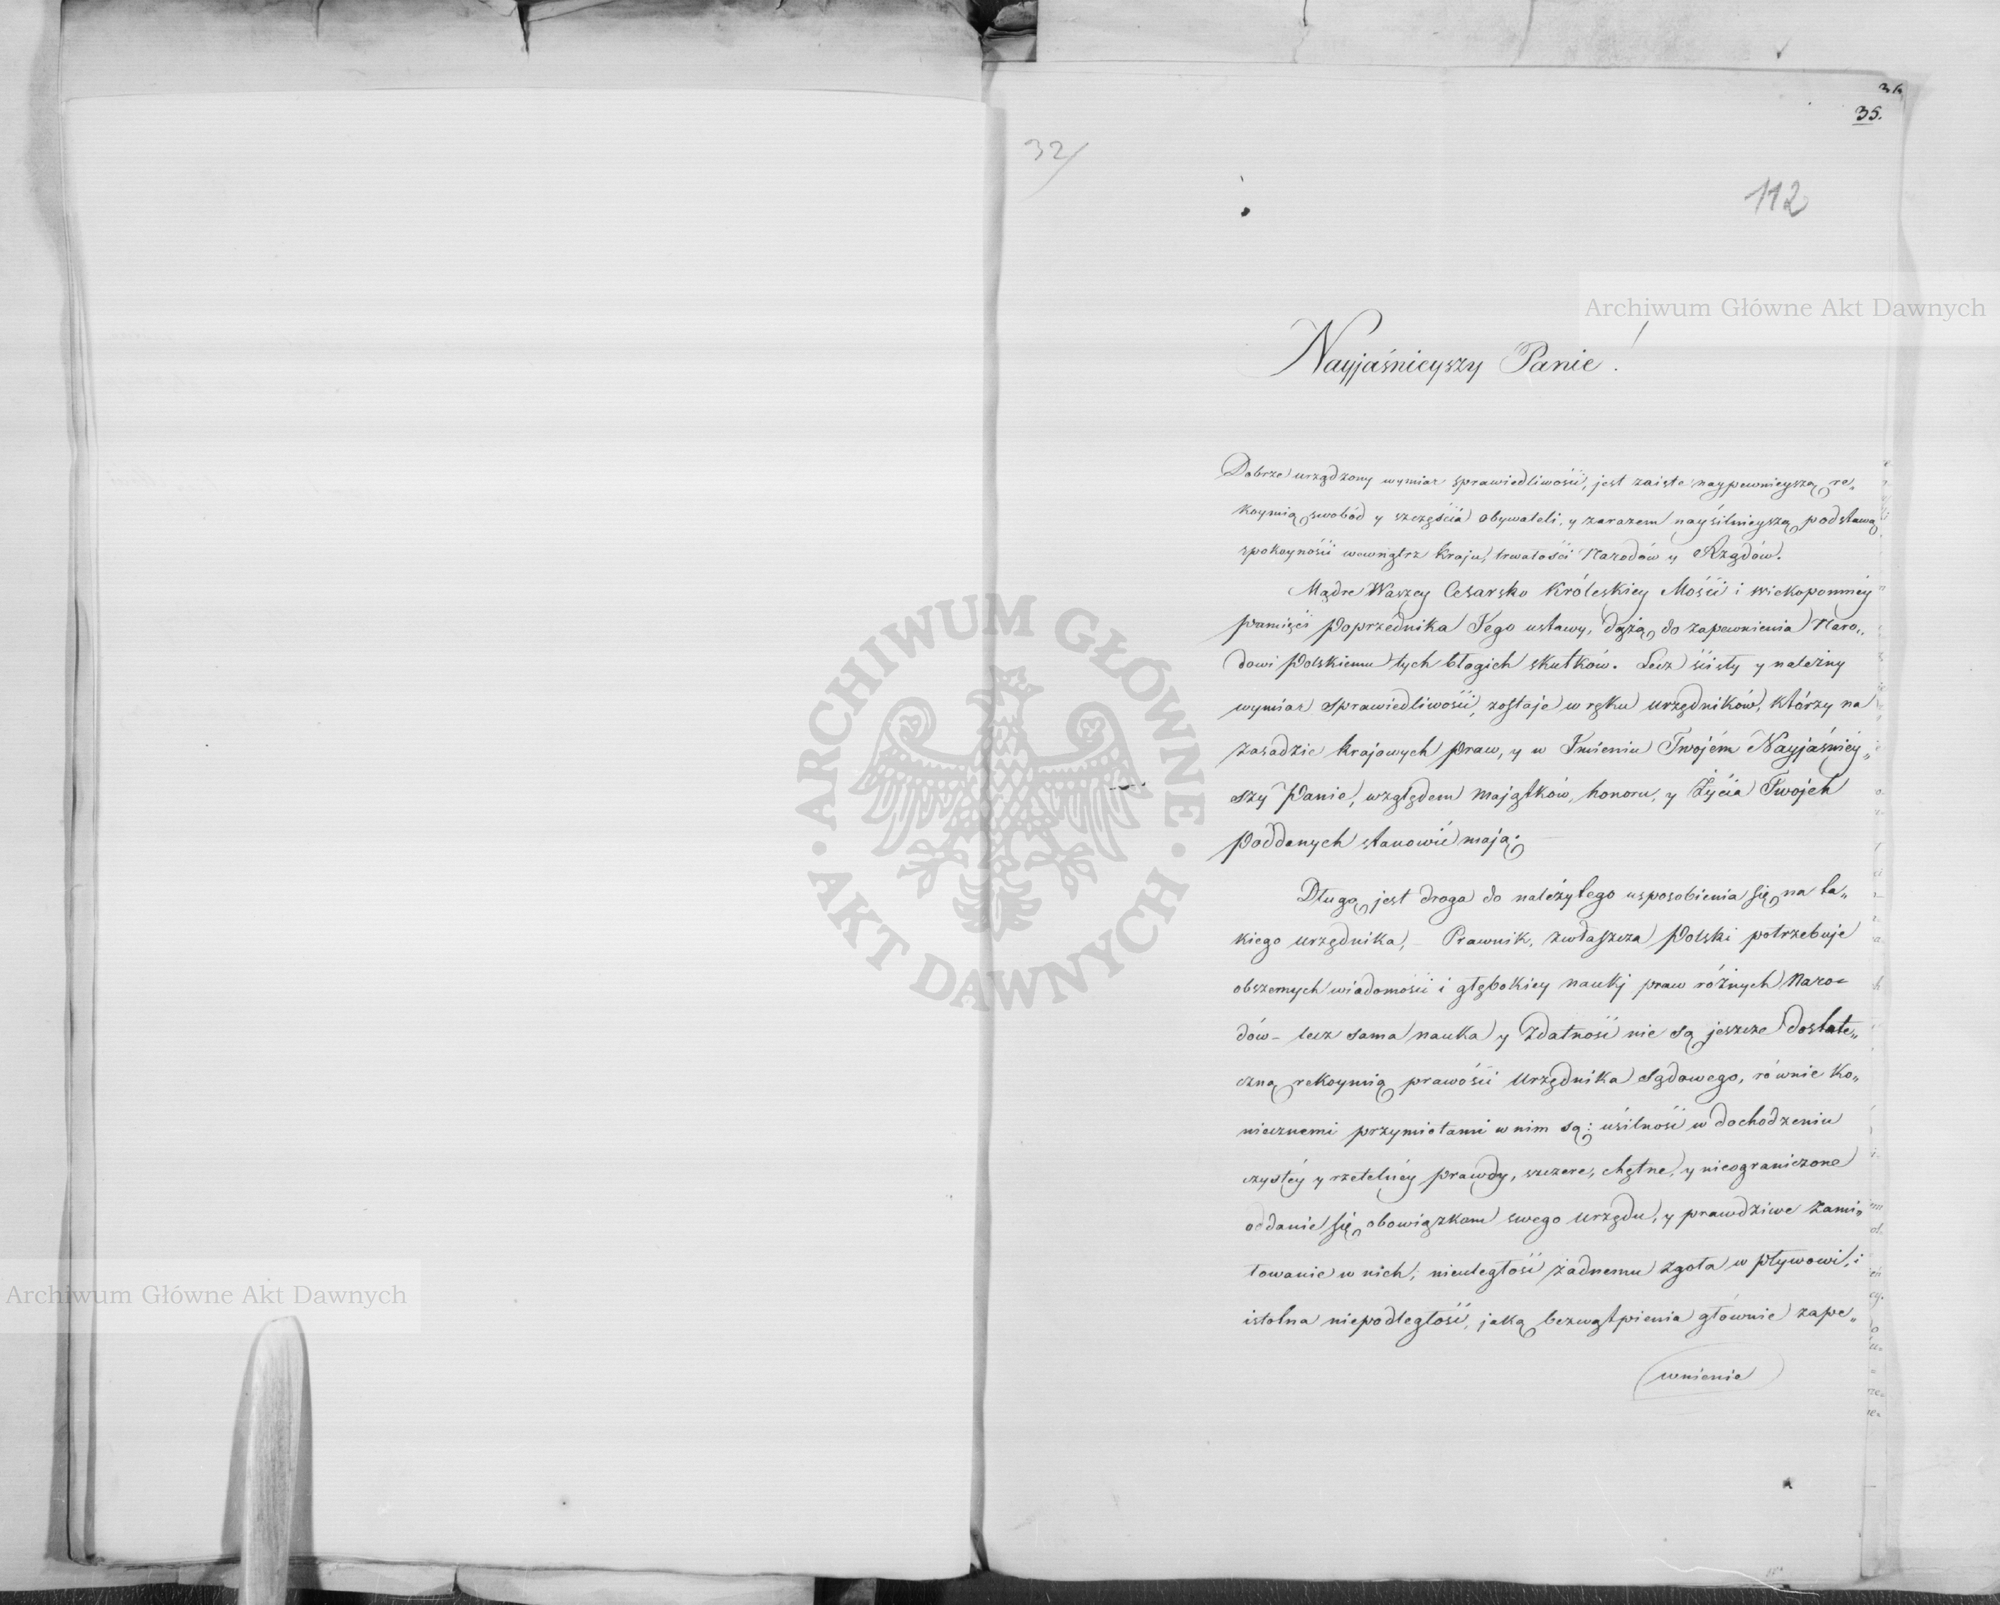 36
35.
32/
112
Archiwum Główne Akt Dawnych
Nayjaśnieyszy Panie!
Dobrze urządzony wymiar sprawiedliwości, jest zaiste naypewnieyszą rę„
koymią swobód y szczęścia obywateli, y zarazem naysilnieyszą podstawą
spokoyności wewnątrz kraju, trwałości Narodów y Rządów.
Mądre Waszey Cesarsko Królewskiey Mości i wiekopomnéy
pamięci Poprzednika Jego ustawy, dążą do zapewnienia Naro„
dowi Polskiemu tych błogich skutków. Lecz ścisły y należny
wymiar sprawiedliwości, zostaje w ręku urzędników, którzy na
zasadzie krajowych Praw, y w Imieniu Twojém Nayjaśniéy„
szy Panie, względem majątków, honoru, y Życia Twojch
poddanych stanowić mają.
Długą jest droga do należytego usposobienia się na ta„
kiego urzędnika, – Prawnik, zwłaszcza Polski potrzebuje
obszernych wiadomości i głębokiey nauki praw różnych Naro=
dów – lecz sama nauka y Zdatność nie są jeszcze dostate„
czną rękoymią prawości Urzędnika Sądowego, równie ko„
niecznemi przymiotami w nim są: usilność w dochodzeniu
czystéy y rzetelnéy prawdy, szczere, chętne, y nieograniczone
oddanie się obowiązkom swego urzędu, y prawdziwe zami„
łowanie w nich; nieuległość żadnemu zgoła wpływowi, i
istotna niepodległość, jaką bezwątpienia głównie zape„
wnienie
ARCHIWUM GŁÓWNE · AKT DAWNYCH ·
Archiwum Główne Akt Dawnych